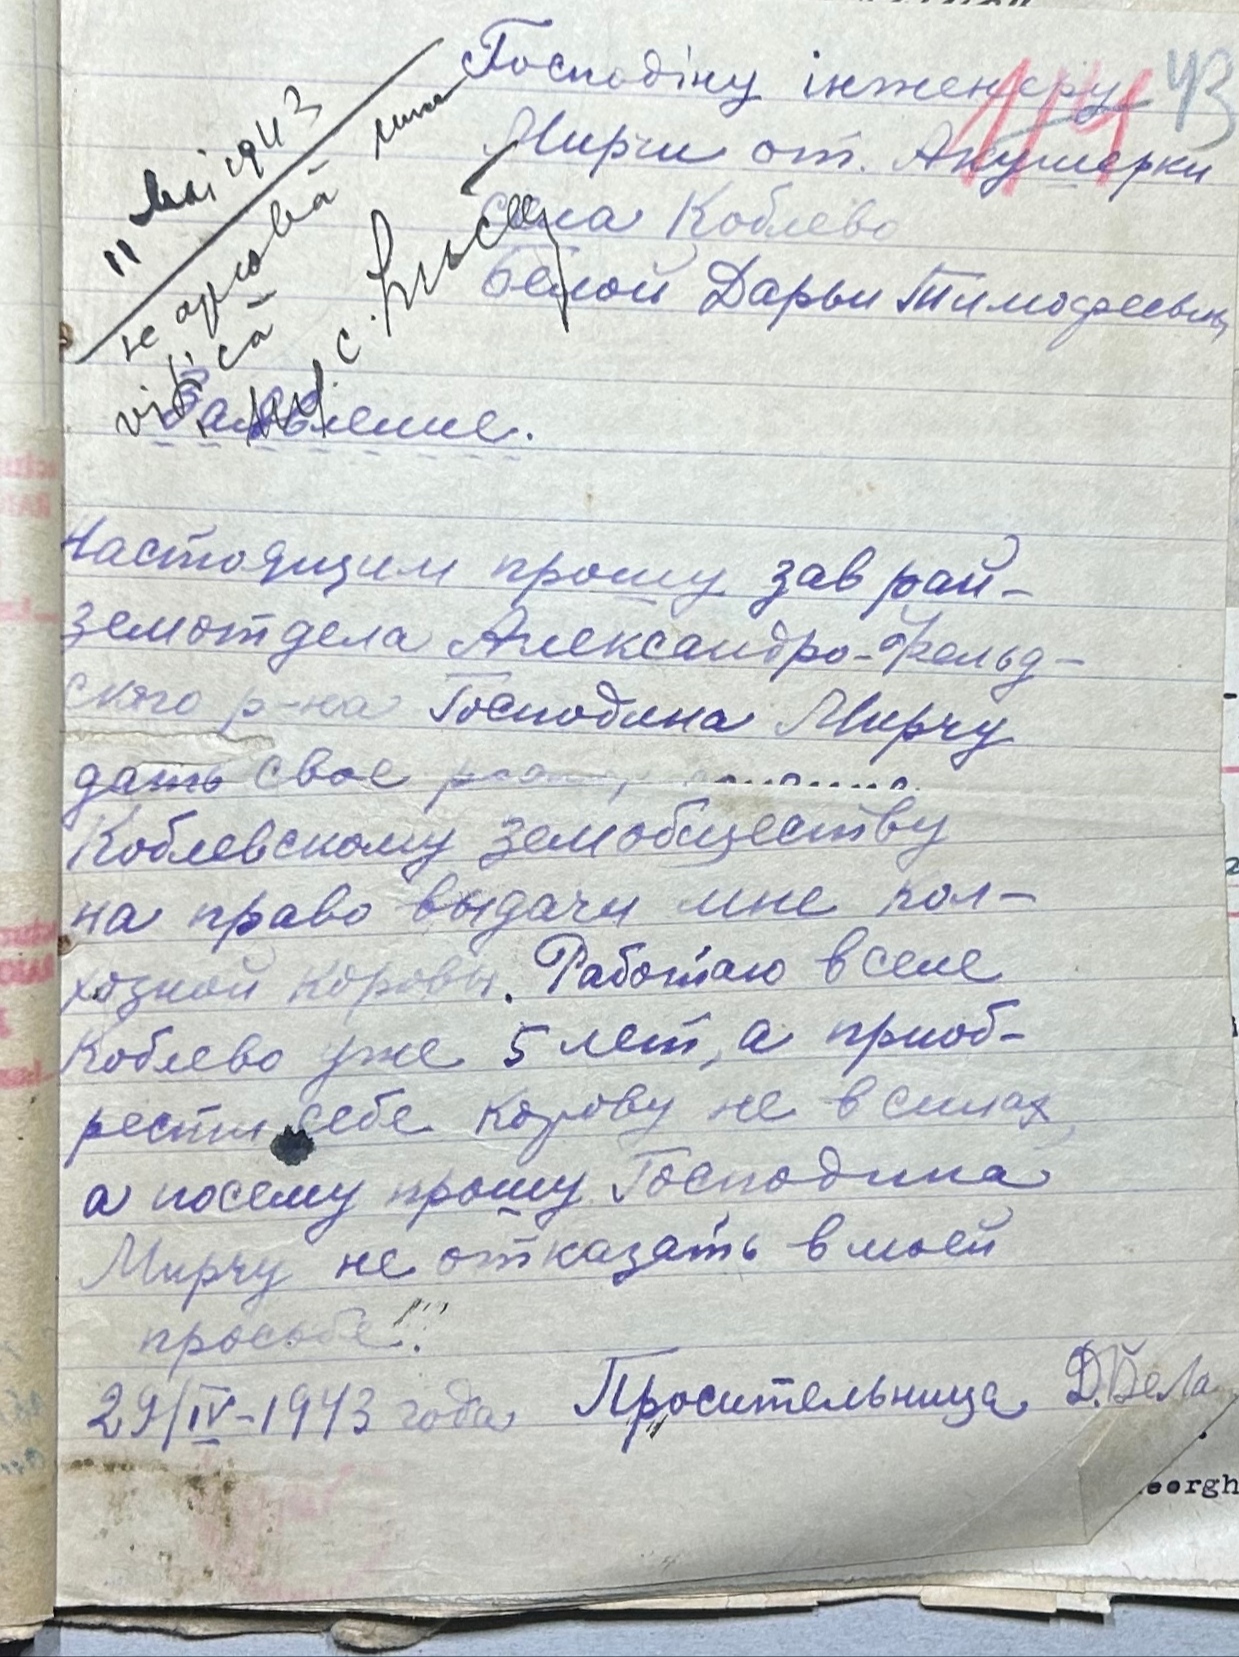 Господіну інженеру
Мирчи от. Акушерки
села Коблево
Белой Дарьи Тимофеевны
43
11 Mai 1943
se aprobă
Заявление.
Настоящим прошу зав рай-
земотдела Александро-Фельд-
ского р-на Господина Мирчу
дать свое
Коблевскому земобществу
на право выдачи мне кол-
хозной коровы. Работаю в селе
Коблево уже 5 лет, а приоб-
рести себе корову не в силах,
а посему прошу Господина
Мирчу не отказать в моей
просьбе!!!
29/IV-1943 года Просительница Д. Бела
eorgh